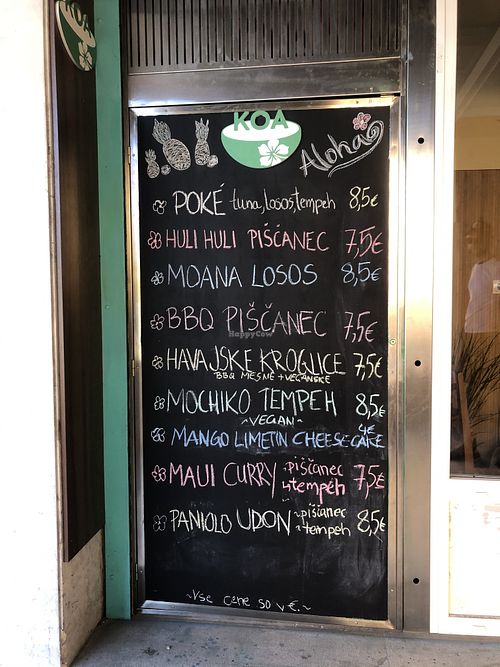 KOA
KOA
Aloha
POKÉ tuna, losos, tempeh 8,5€
HULI HULI PIŠČANEC 7,5€
MOANA LOSOS 8,5€
BBQ PIŠČANEC 7,5€
HappyCow
HAVAJSKE KROGLICE 7,5€
BBQ MESNE + VEGANSKE
MOCHIKO TEMPEH 8,5€
~VEGAN~
MANGO LIMETIN CHEESECAKE 4€
MAUI CURRY ~piščanec 7,5€
~tempeh
PANIOLO UDON ~piščanec 8,5€
~tempeh
~Vse cene so v €.~